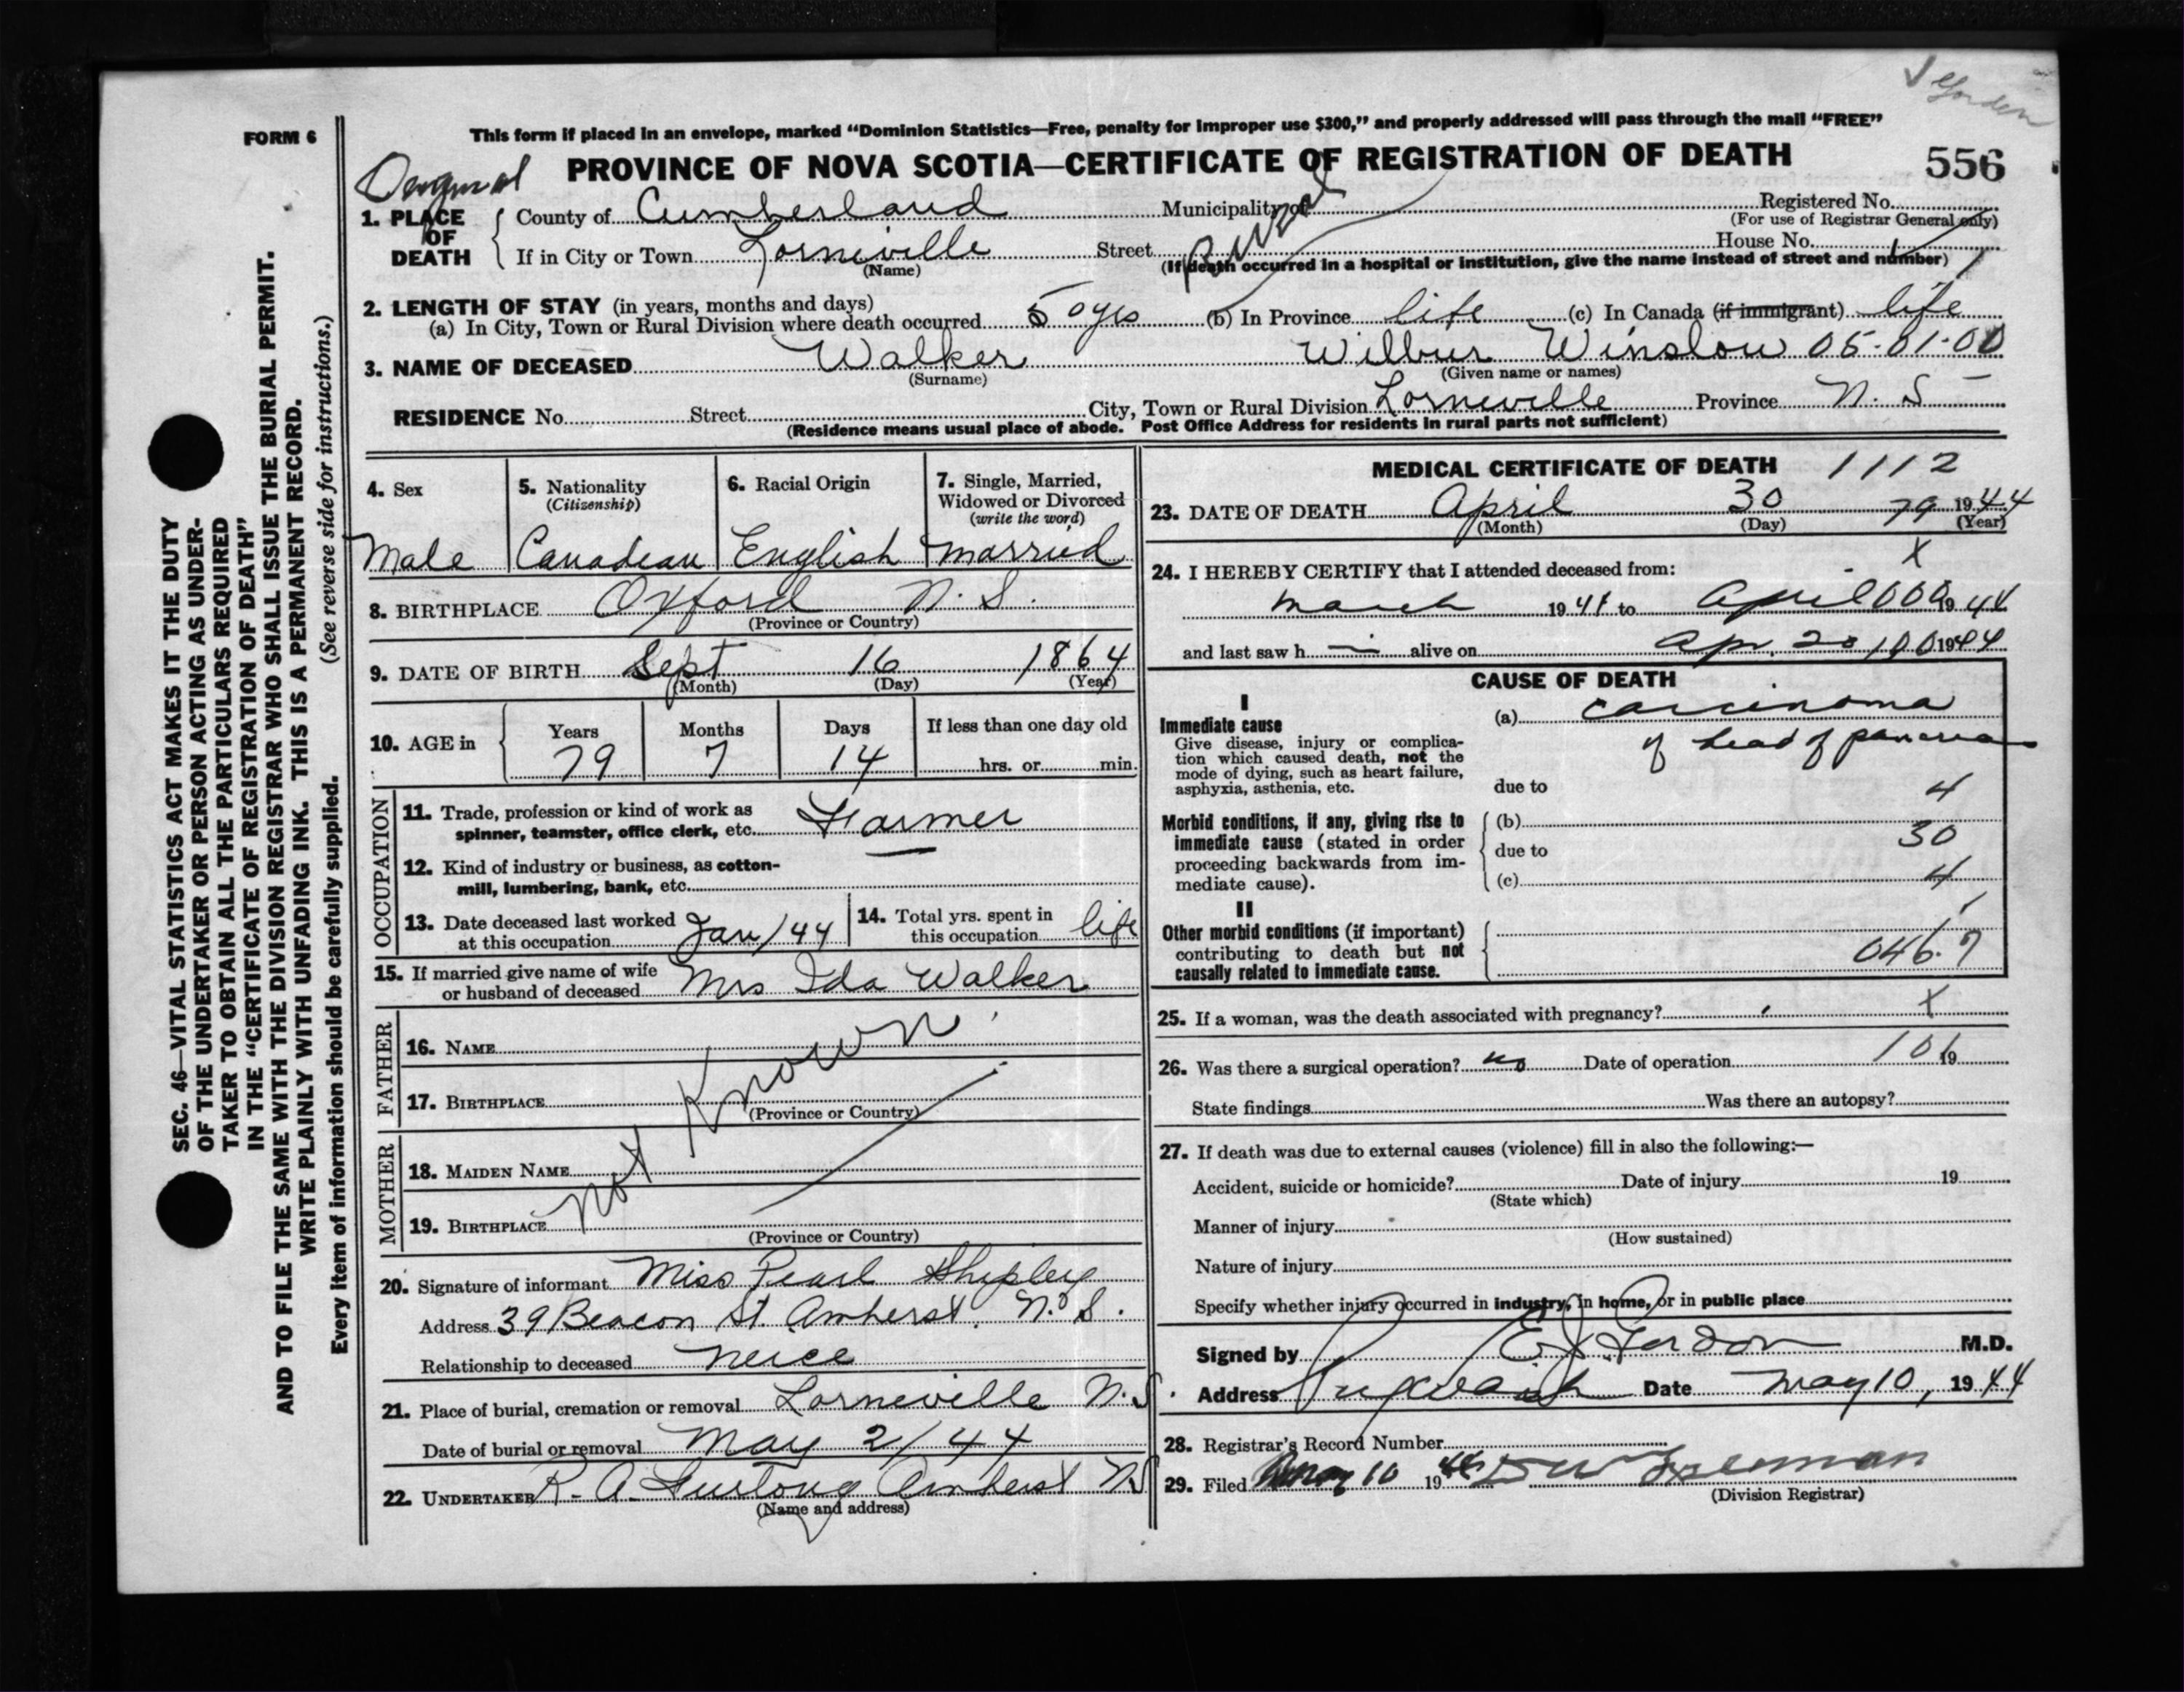 ✓ Gordon
FORM 6
This form if placed in an envelope, marked “Dominion Statistics—Free, penalty for improper use $300,” and properly addressed will pass through the mail “FREE”
Original PROVINCE OF NOVA SCOTIA—CERTIFICATE OF REGISTRATION OF DEATH 556
1. PLACE OF DEATH County of Cumberland Municipality of Rural Registered No.
(For use of Registrar General only)
If in City or Town Lorneville Street House No.
(Name) (If death occurred in a hospital or institution, give the name instead of street and number)
2. LENGTH OF STAY (in years, months and days)
(a) In City, Town or Rural Division where death occurred 50 yrs (b) In Province life (c) In Canada (if immigrant) life
3. NAME OF DECEASED Walker Wilbur Winslow 05-01-00
(Surname) (Given name or names)
RESIDENCE No. Street City, Town or Rural Division Lorneville Province N. S
(Residence means usual place of abode. Post Office Address for residents in rural parts not sufficient)
4. Sex 5. Nationality 6. Racial Origin 7. Single, Married,
(Citizenship) Widowed or Divorced
(write the word)
Male Canadean English Married
8. BIRTHPLACE Oxford N. S.
(Province or Country)
9. DATE OF BIRTH Sept 16 1864
(Month) (Day) (Year)
10. AGE in Years Months Days If less than one day old
79 7 14 hrs. or min.
OCCUPATION
11. Trade, profession or kind of work as
spinner, teamster, office clerk, etc. Farmer
12. Kind of industry or business, as cotton-
mill, lumbering, bank, etc.
13. Date deceased last worked
at this occupation Jan/44
14. Total yrs. spent in
this occupation life
15. If married give name of wife
or husband of deceased Mrs Ida Walker
FATHER
16. NAME
17. BIRTHPLACE
(Province or Country)
Not Known
MOTHER
18. MAIDEN NAME
19. BIRTHPLACE
(Province or Country)
20. Signature of informant Miss Pearl Shipley
Address 39 Beacon St. Amherst. N. S.
Relationship to deceased Neice
21. Place of burial, cremation or removal Lorneville N.S.
Date of burial or removal May 2/44
22. UNDERTAKER R. A. Amherst NS
(Name and address)
MEDICAL CERTIFICATE OF DEATH 1112
23. DATE OF DEATH April 30 79 1944
(Month) (Day) (Year)
X
24. I HEREBY CERTIFY that I attended deceased from:
March 1944 to April 000 1944
and last saw h alive on Apr. 20 100 1944
CAUSE OF DEATH
I
Immediate cause
Give disease, injury or complica-
tion which caused death, not the
mode of dying, such as heart failure,
asphyxia, asthenia, etc.
(a) Carcinoma
of head of pancreas
due to 4
Morbid conditions, if any, giving rise to
immediate cause (stated in order
proceeding backwards from im-
mediate cause).
(b)
due to 30
(c) 4
II
Other morbid conditions (if important)
contributing to death but not
causally related to immediate cause.
046.7
25. If a woman, was the death associated with pregnancy? X
26. Was there a surgical operation? no Date of operation 101 19
State findings Was there an autopsy?
27. If death was due to external causes (violence) fill in also the following:—
Accident, suicide or homicide? Date of injury 19
(State which)
Manner of injury
(How sustained)
Nature of injury
Specify whether injury occurred in industry, in home, or in public place
Signed by E J Gordon M.D.
Address Pugwash Date May 10, 1944
28. Registrar's Record Number
29. Filed May 10 1944
(Division Registrar)
SEC. 46—VITAL STATISTICS ACT MAKES IT THE DUTY
OF THE UNDERTAKER OR PERSON ACTING AS UNDER-
TAKER TO OBTAIN ALL THE PARTICULARS REQUIRED
IN THE “CERTIFICATE OF REGISTRATION OF DEATH”
AND TO FILE THE SAME WITH THE DIVISION REGISTRAR WHO SHALL ISSUE THE BURIAL PERMIT.
WRITE PLAINLY WITH UNFADING INK. THIS IS A PERMANENT RECORD.
Every item of information should be carefully supplied. (See reverse side for instructions.)